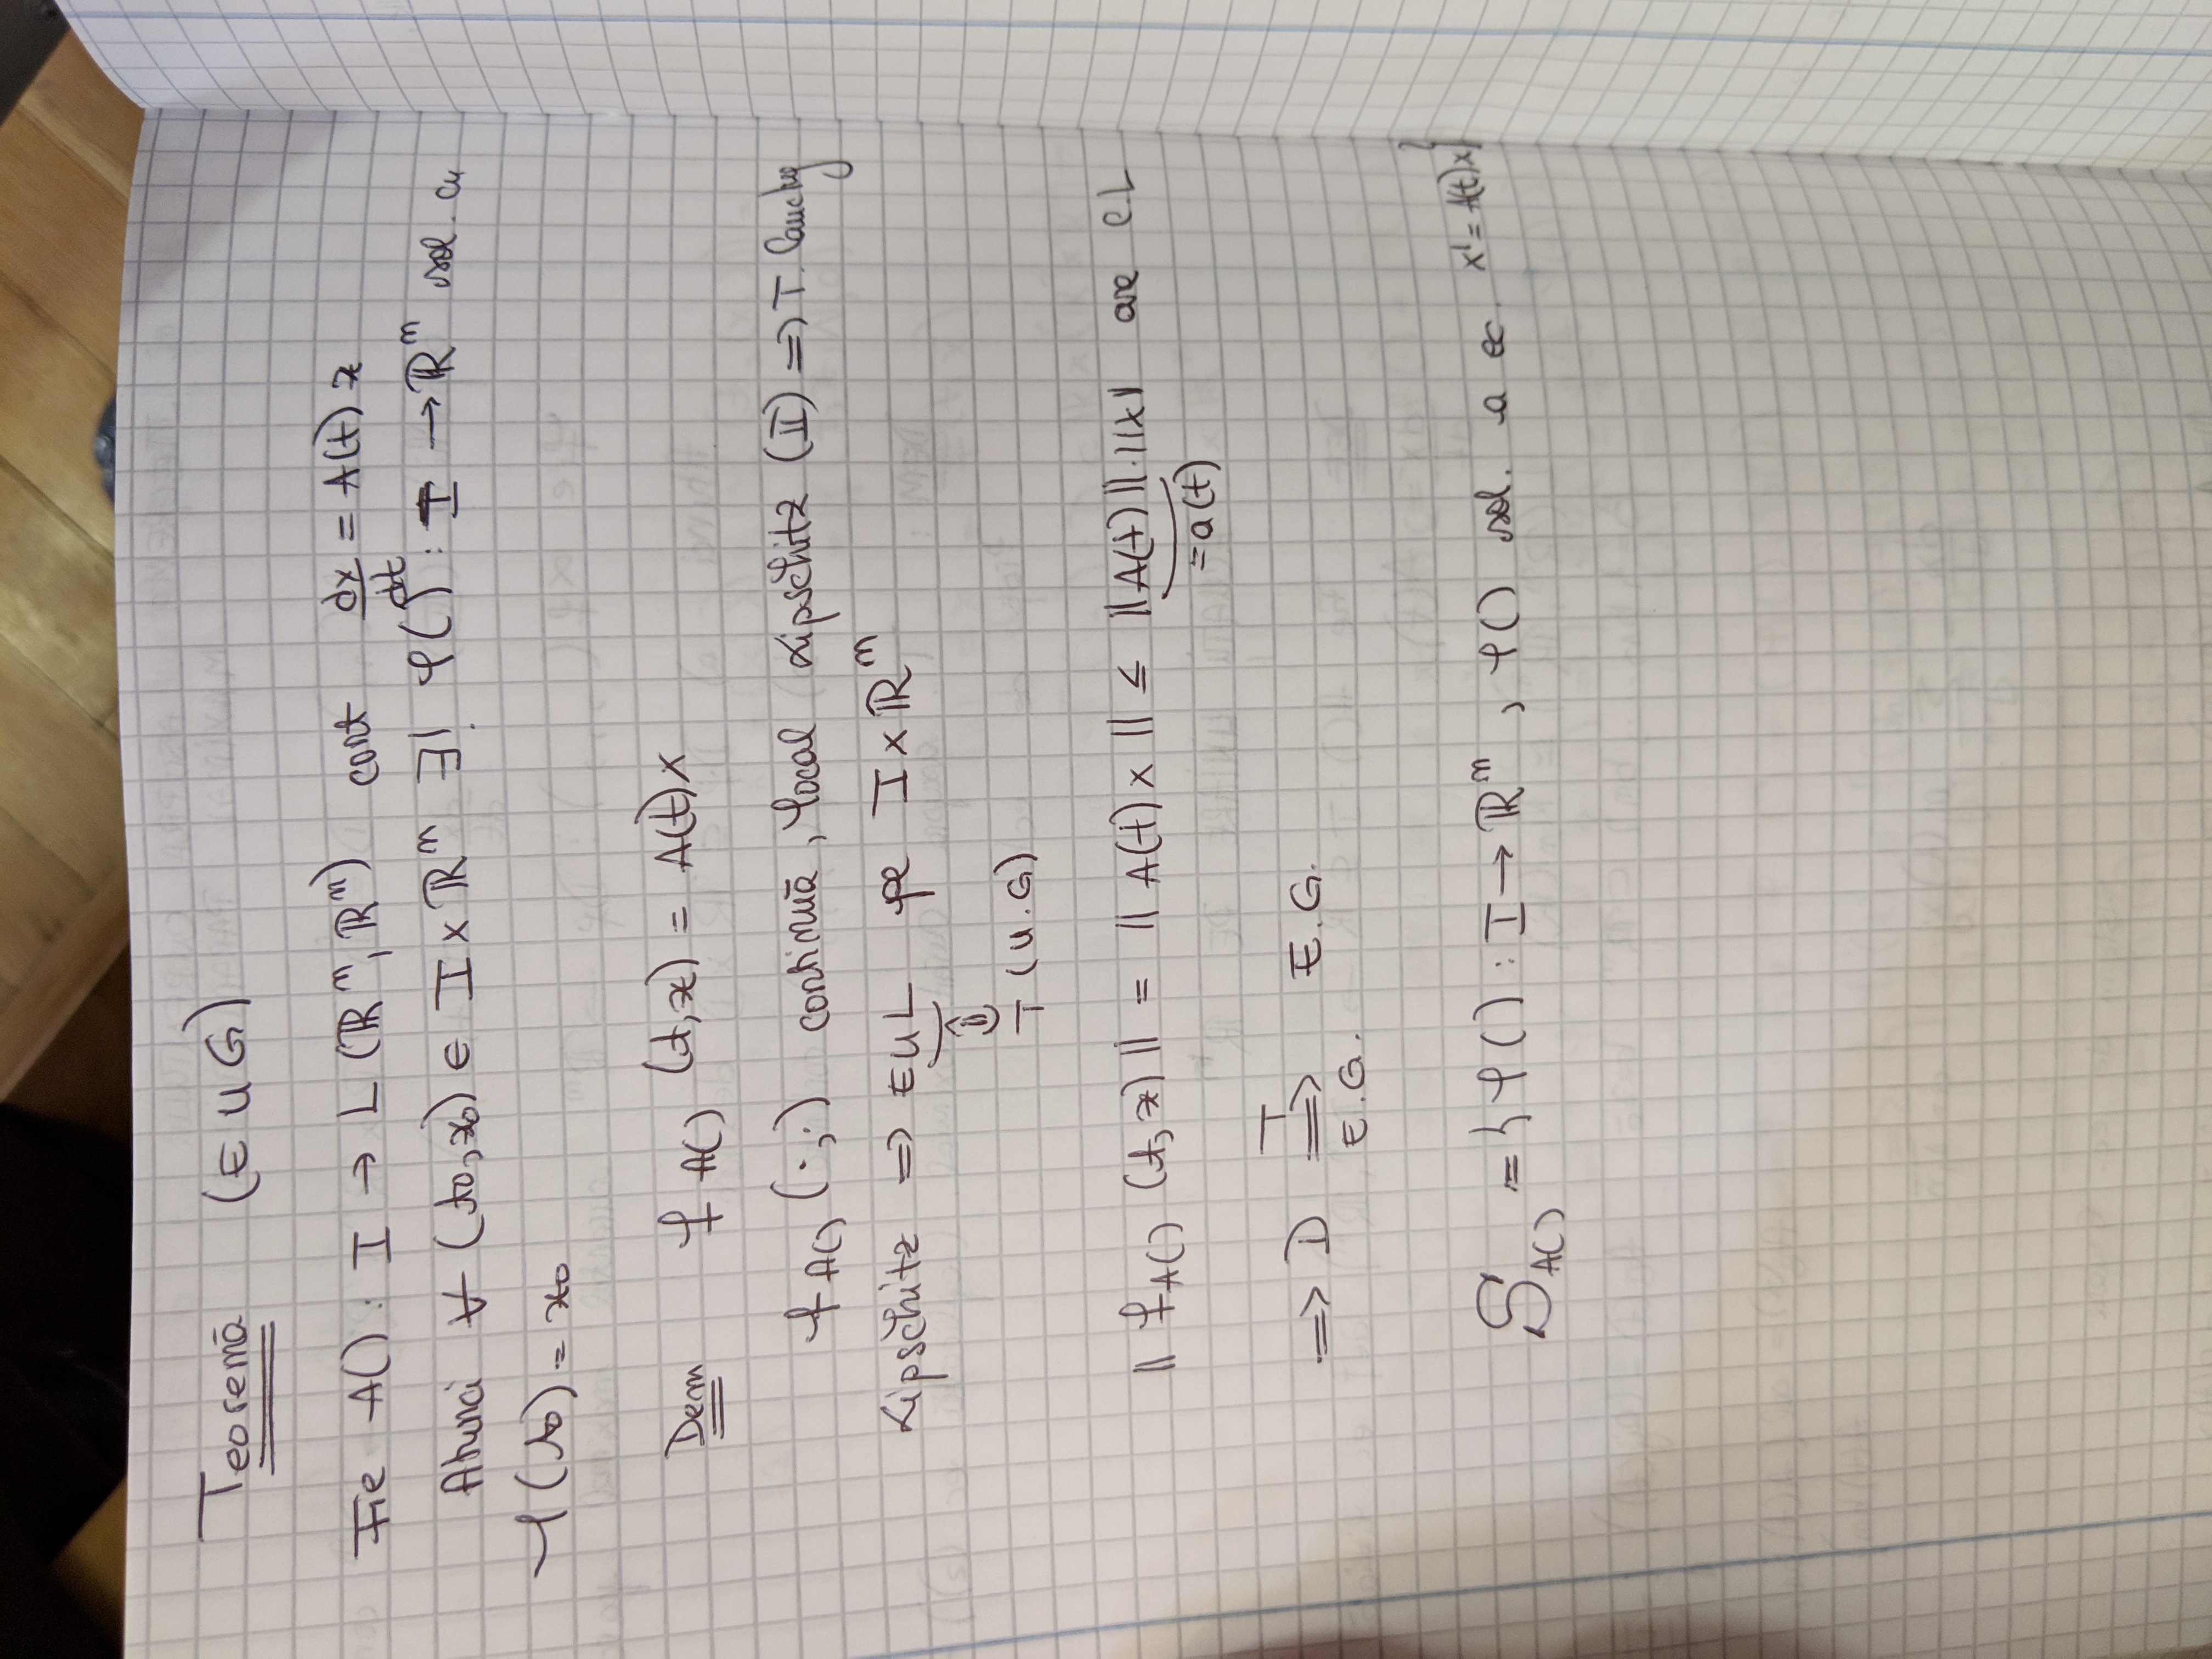 Teoremă (E U G)
Fie A() : I → L (ℝⁿ, ℝⁿ) cont dx/dt = A(t) x
Atunci ∀ (t₀, x₀) ∈ I × ℝⁿ ∃! φ() : I → ℝⁿ sol. cu
φ(t₀) = x₀
Dem f_A() (t, x) = A(t) x
f_A() (·,·) continuă, local Lipschitz (II) => T. Cauchy
Lipschitz => E U L pe I × ℝⁿ
⇕
T (U.G)
|| f_A() (t, x) || = || A(t) x || ≤ || A(t) || · || x || are C.L
= a(t)
=> D =T=> E.G.
E.G.
S_A() = { φ() : I → ℝⁿ, φ() sol. a ec. x' = A(t) x }